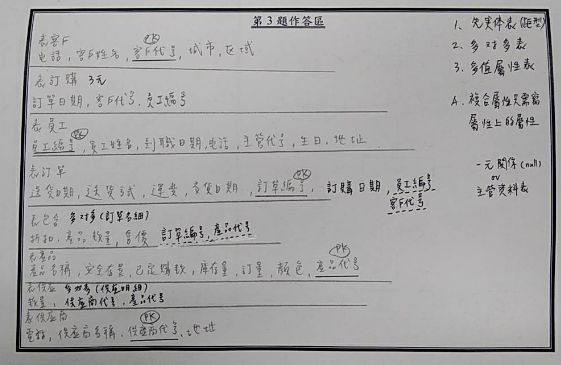 第 3 題作答區
表客戶
電話, 客戶姓名, 客戶代号, 城市, 区域
PK
表訂購 3元
訂單日期, 客戶代号, 員工編号
表員工
員工編号, 員工姓名, 到職日期, 电话, 主管代号, 生日, 地址
PK
表訂單
送貨日期, 送貨方式, 運費, 訂單編号, 訂購日期, 員工編号
PK
客戶代号
表包含 多对多(訂單明細)
折扣, 產品, 數量, 售價 訂單編号, 產品代号
表產品
產品名稱, 安全存貨, 已定購數, 庫存量, 訂量, 顏色, 產品代号
PK
表供应 多对多(供应明細)
數量, 供应商代号, 產品代号
表供应商
電話, 供应商名稱, 供应商代号, 地址
PK
1. 先实体表
2. 多对多表
3. 多值屬性表
4. 複合屬性只需寫
屬性上的屬性
一元関係(null)
or
主管資料表